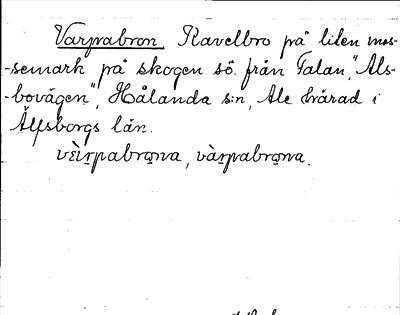 Varpabron. Kavelbro på liten mos-
-semark på skogen sö. från Talan, "Als-
-bovägen", Hålanda s:n, Ale härad i
Älfsborgs län.
vèi̱rpabro̱na, và̱rpabro̱na.